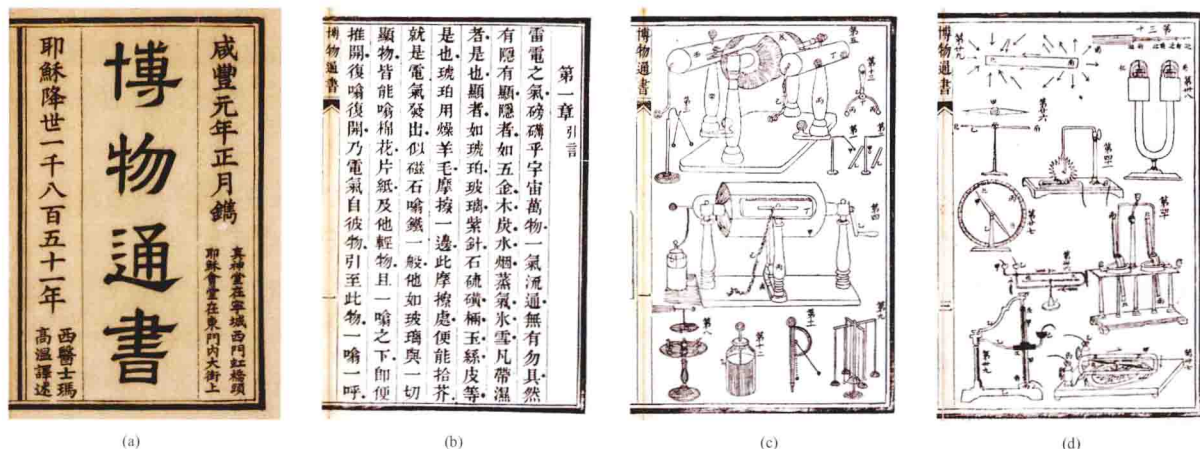 咸豐元年正月鐫
真神堂在寧城西門虹橋頭
耶穌會堂在東門內大街上
博物通書
耶穌降世一千八百五十一年
西醫士瑪
高溫譯述
(a)
第一章 引言
雷電之氣磅礴乎宇宙萬物一氣流通無有勿具然
有隱有顯隱者如五金木炭水烟蒸氣氷雪凡帶濕
者是也顯者如琥珀玻璃紫針石硫磺桶玉絲皮等
是也琥珀用燥羊毛摩擦一邊此摩擦處便能拾芥
就是電氣發出似磁石噏鐵一般他如玻璃與一切
顯物皆能噏棉花片紙及他輕物且一噏之下卽便
推開復噏復開乃電氣自彼物引至此物一噏一呼
博物通書
一
(b)
第五
第四
第九
第八
第十二
第十一
博物通書
(c)
第廿六
第廿七
博物通書
三
(d)